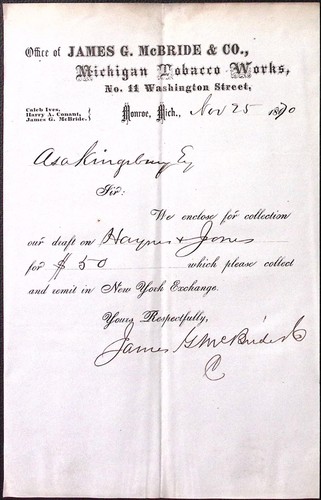 Office of JAMES G. McBRIDE & CO.,
Michigan Tobacco Works,
No. 11 Washington Street,
Caleb Ives,
Harry A. Conant,
James G. McBride.
Monroe, Mich., Nov 25 1870
Asa Kingsbury Eq
Sir:
We enclose for collection
our draft on Haynes & Jones
for $50 which please collect
and remit in New York Exchange.
Yours Respectfully,
James G McBride & Co
C